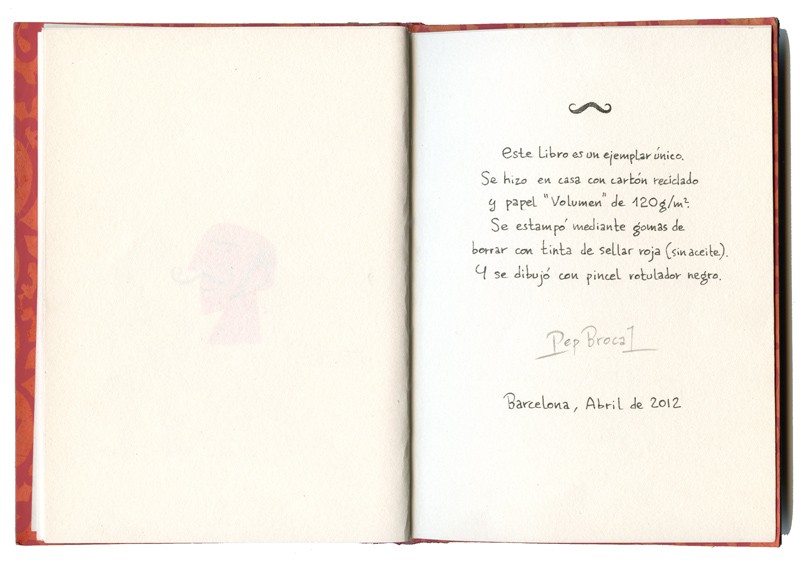 Este Libro es un ejemplar único.
Se hizo en casa con cartón reciclado
y papel "Volumen" de 120g/m².
Se estampó mediante gomas de
borrar con tinta de sellar roja (sin aceite).
Y se dibujó con pincel rotulador negro.
Pep Brocal
Barcelona, Abril de 2012